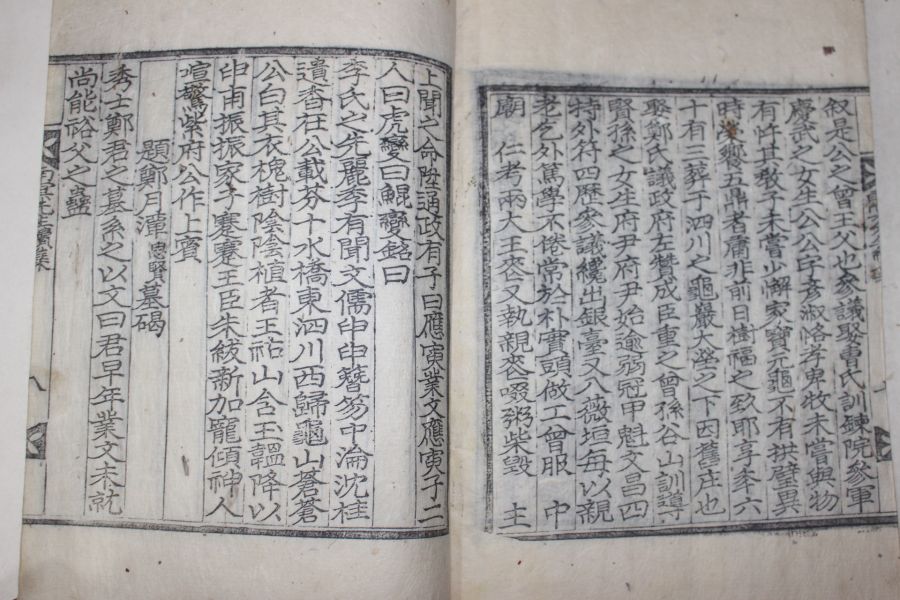 叙是公之曾王父也參議娶曺氏訓鍊院參軍
慶武之女生公公字彦淑恪孝卑牧未嘗與物
有忤其敎子未嘗少懈家寶元龜不有拱璧異
時學饗五鼎者庸非前日樹福之致耶享年六
十有三葬于泗川之龜巖大塋之下因舊庄也
娶鄭氏議政府左贊成臣重之曾孫谷山訓導
賢孫之女生府尹府尹始逾弱冠甲魁文昌四
特外符四歷家議纔出銀臺又入薇垣每以親
老乞外篤學不倦常於朴實頭做工曾服 中
廟 仁考兩大王喪又執親喪啜粥柴毁 主
上聞之命陞通政有子曰應寅業文應寅子二
人曰虎變曰鯤變銘曰
李氏之先麗季有聞文儒申申簪笏中淪沈桂
遺香在公載芬十水橋東泗川西歸龜山蒼蒼
公白其衣槐樹陰陰植者王祐山含王韞降以
申甫振振家子蹇蹇王臣朱紱新加寵傾神人
喧驚紫府公作上賓
題鄭月潭思賢墓碣
秀士鄭君之墓系之以文曰君早年業文未就
尚能裕父之蠱
八